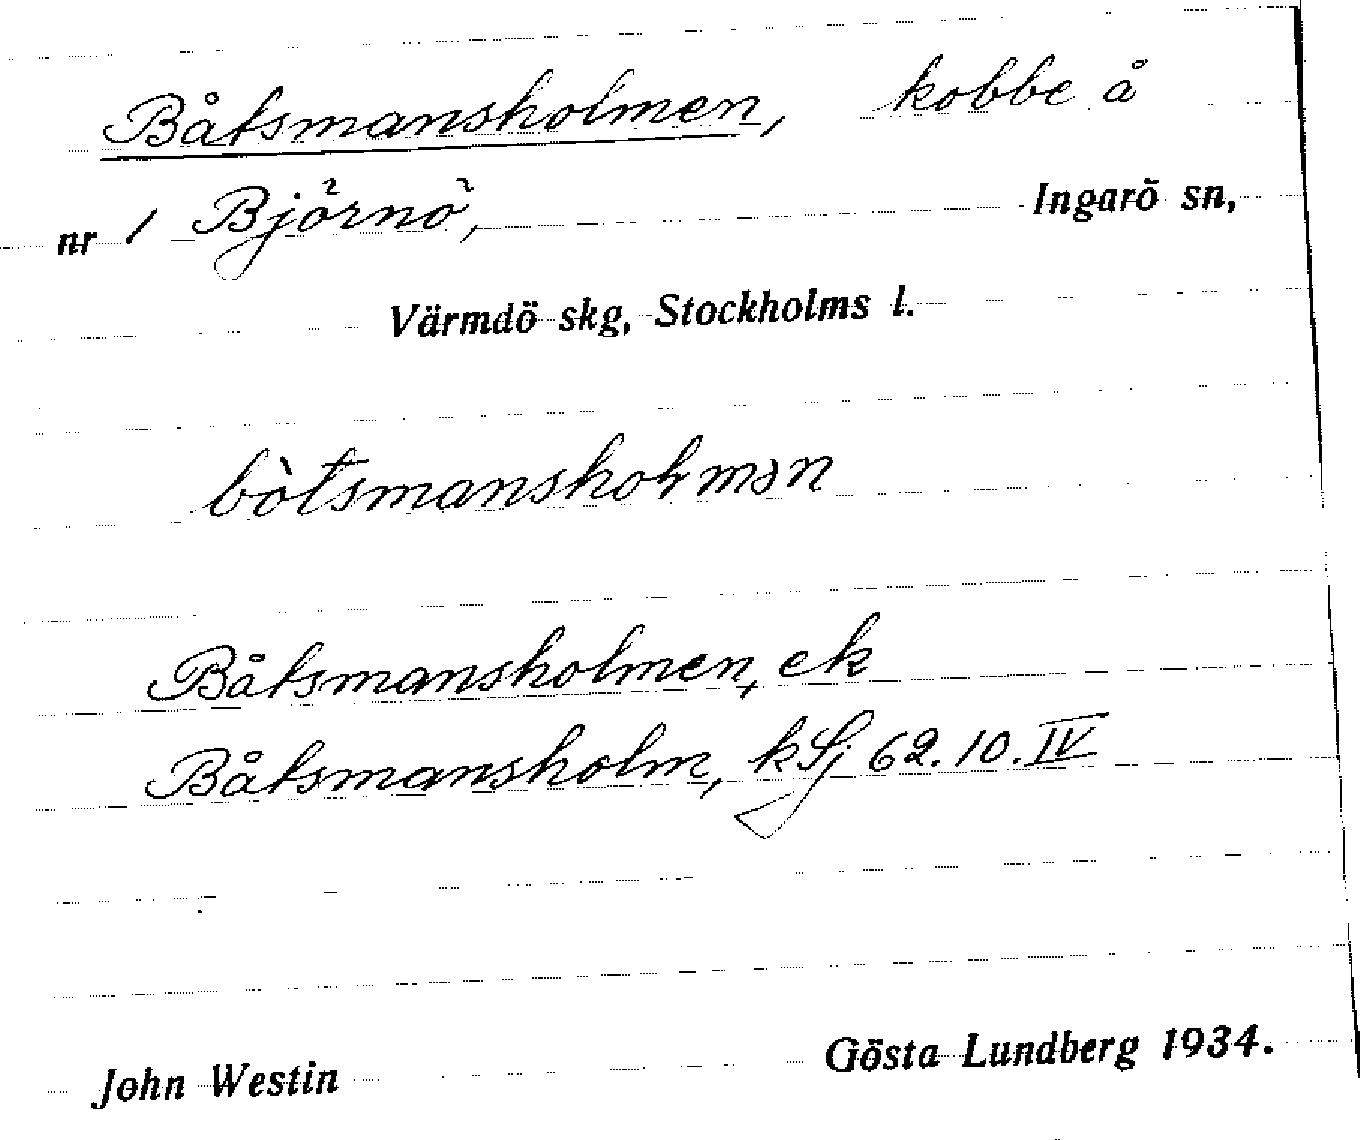 Båtsmansholmen, kobbe å
nr 1 Björnö, Ingarö sn,
Värmdö skg, Stockholms l.
bòtsmansholmən
Båtsmansholmen, ek
Båtsmansholm, kSj 62.10.IV
John Westin Gösta Lundberg 1934.